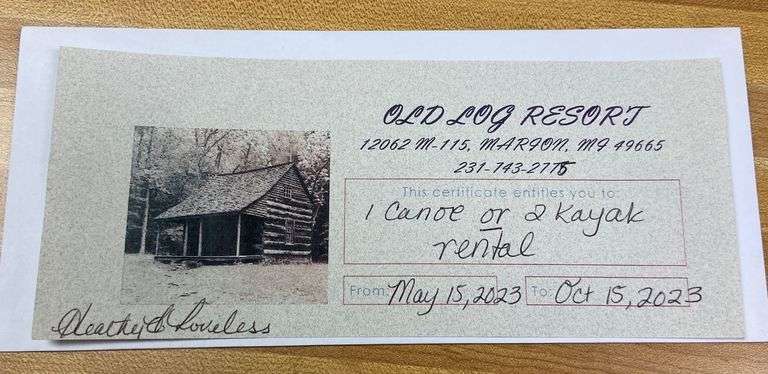 OLD LOG RESORT
12062 M-115, MARION, MI 49665
231-743-2775
This certificate entitles you to:
1 Canoe or 2 Kayak
rental
From: May 15, 2023 To: Oct 15, 2023
Heather L Loveless